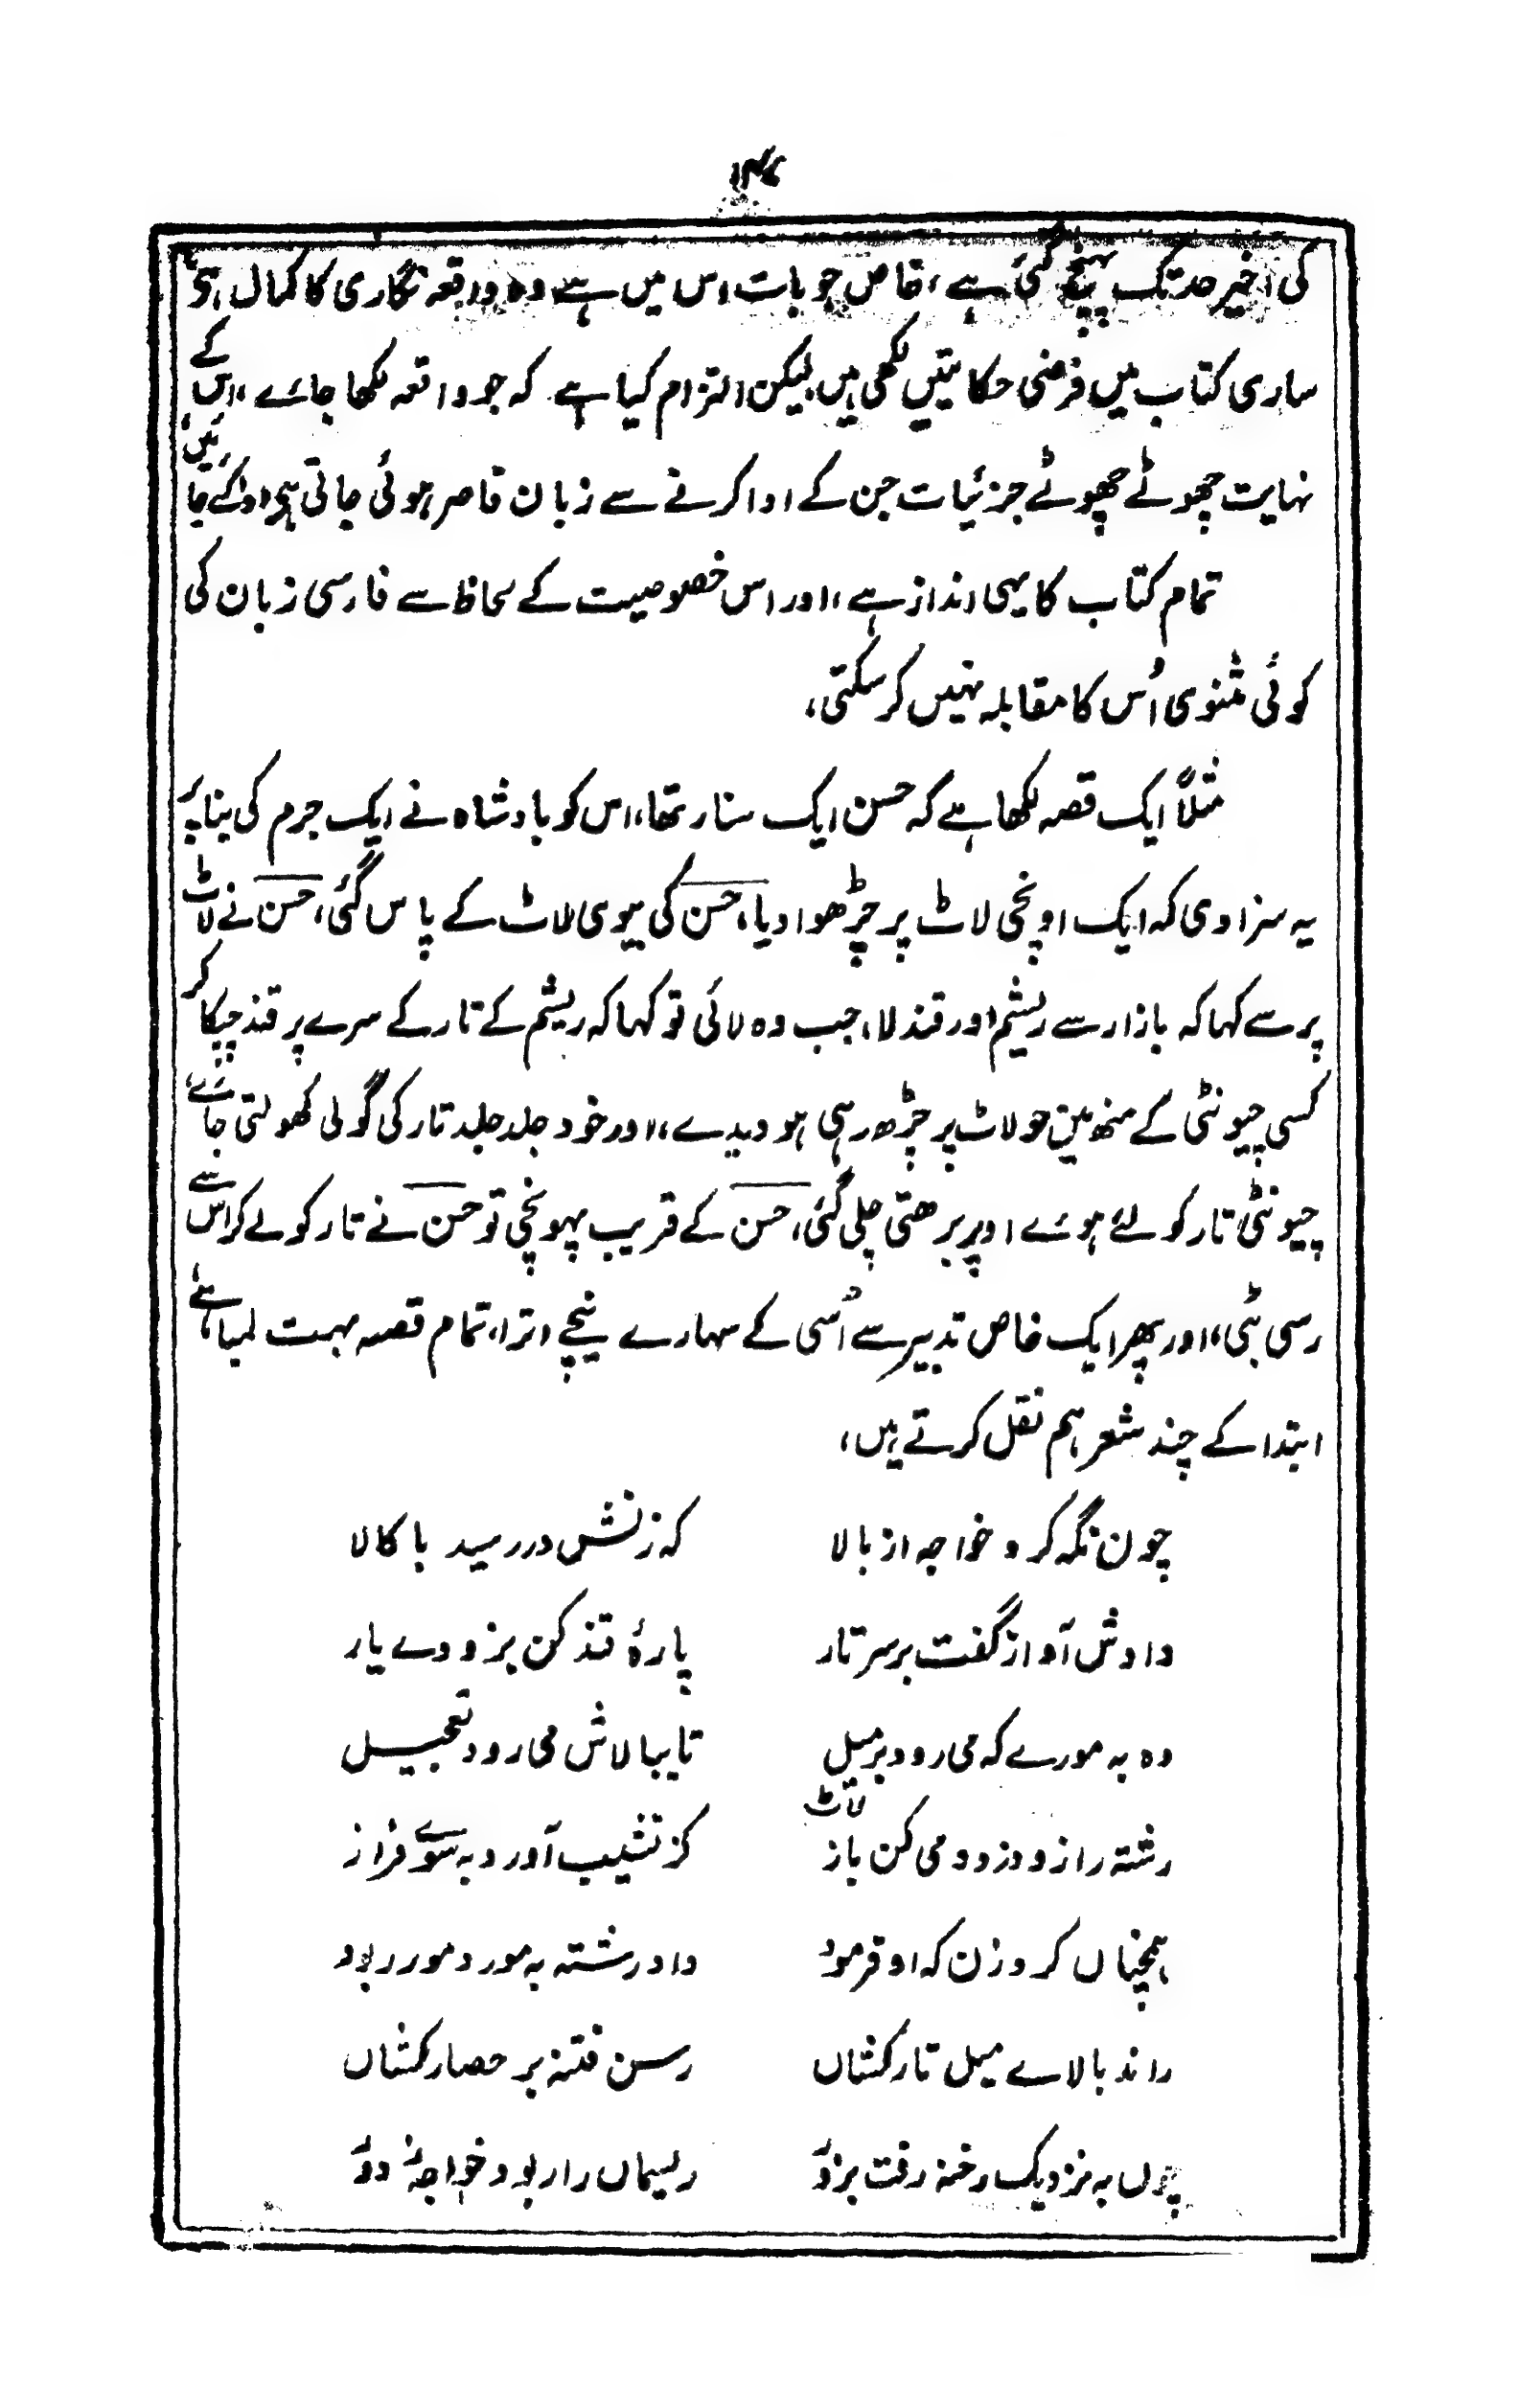 ۱۴۷
کی اخیر حد تک پہنچ گئی ہے، خاص جو بات اس میں ہے وہ واقعہ نگاری کا کمال ہی،
ساری کتاب میں فرضی حکایتیں لکھی ہیں لیکن التزام کیا ہے کہ جو واقعہ لکھا جائے، اس کے
نہایت چھوٹے چھوٹے جزئیات جن کے ادا کرنے سے زبان قاصر ہوئی جاتی ہی ادا کئے جائیں،
تمام کتاب کا یہی انداز ہے، اور اس خصوصیت کے لحاظ سے فارسی زبان کی
کوئی مثنوی اُس کا مقابلہ نہیں کر سکتی،
مثلاً ایک قصہ لکھا ہے کہ حسن ایک سنار تھا، اس کو بادشاہ نے ایک جرم کی بنا پر
یہ سزا دی کہ ایک اونچی لاٹ پر چڑھوا دیا، حسن کی بیوی لاٹ کے پاس گئی، حسن نے لاٹ
پر سے کہا کہ بازار سے ریشم اور قند لا، جب وہ لائی تو کہا کہ ریشم کے تار کے سرے پر قند چپکا کر
کسی چیونٹی کے منھ میں جو لاٹ پر چڑھ رہی ہو دیدے، اور خود جلد جلد تار کی گولی کھولتی جائے
چیونٹی تار کو لئے ہوئے اوپر بڑھتی چلی گئی، حسن کے قریب پہونچی تو حسن نے تار کو لے کر اس سے
رسی بٹی، اور پھر ایک خاص تدبیر سے اُسی کے سہارے نیچے اترا، تمام قصہ بہت لمبا ہے
ابتدا کے چند شعر ہم نقل کرتے ہیں،
چون نگہ کرد خواجہ از بالا کہ زنش در رسید با کالا
دادش آواز گفت بر سر تار پارۂ قند کن بزودے یار
دہ بہ مورے کہ می رود بر میل تا ببالاش می رود تعجیل
لاٹ
رشتہ را زود زود می کن باز کز نشیب آورد بہ سوے فراز
ہمچناں کرد زن کہ او فرمود داد رشتہ بہ مور د مور ربود
راند بالاے میل تار کشاں رسن فتنہ بر حصار کشاں
چوں بہ نزدیک رخنہ رفت بزوٗر ریسماں را ربود خواجہٗ دوٗر